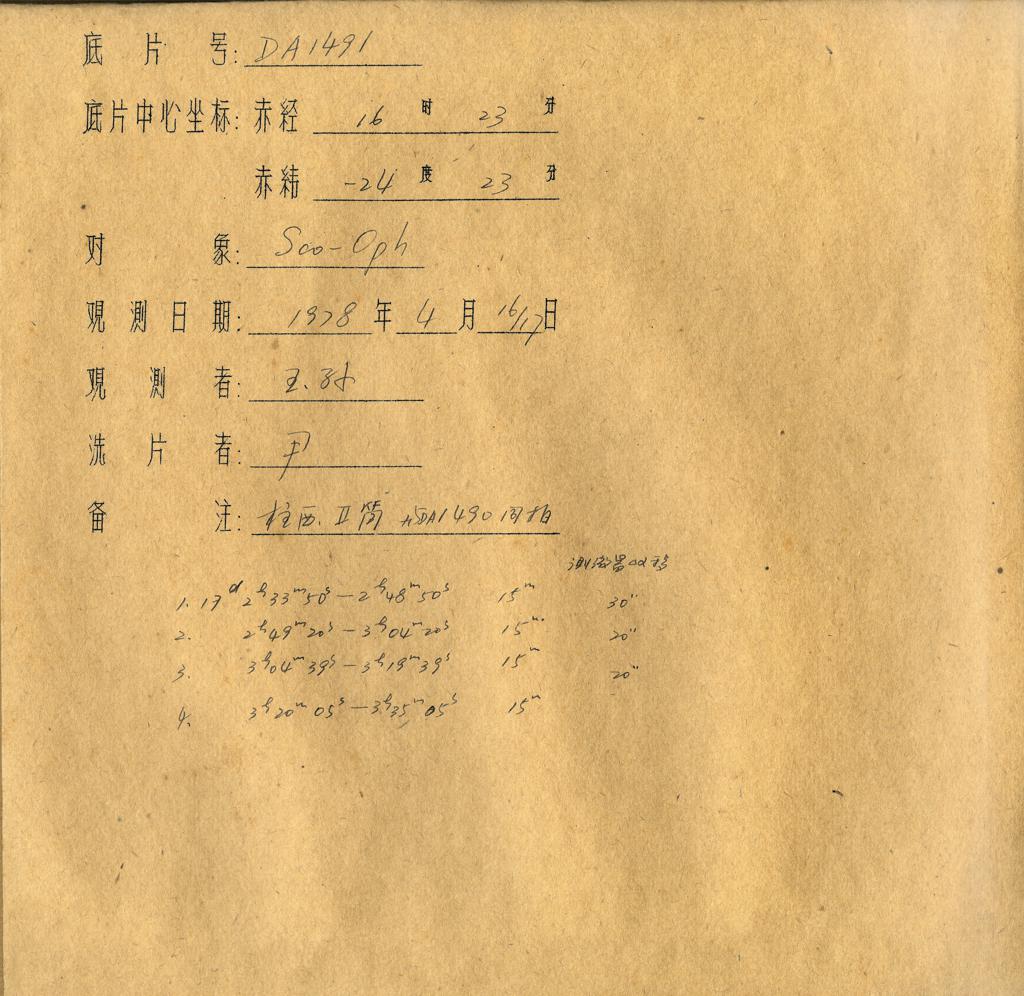 底片号: DA1491
底片中心坐标: 赤经 16 时 23 分
赤纬 -24 度 23 分
对象: Sco-Oph
观测日期: 1978 年 4 月 16/17 日
观测者: 王.孙
洗片者: 尹
备注: 柱西. II筒 与DA1490同拍
测微器α移
1. 17ᵈ 2ʰ33ᵐ50ˢ — 2ʰ48ᵐ50ˢ 15ᵐ 30"
2. 2ʰ49ᵐ20ˢ — 3ʰ04ᵐ20ˢ 15ᵐ 20"
3. 3ʰ04ᵐ39ˢ — 3ʰ19ᵐ39ˢ 15ᵐ 20"
4. 3ʰ20ᵐ05ˢ — 3ʰ35ᵐ05ˢ 15ᵐ